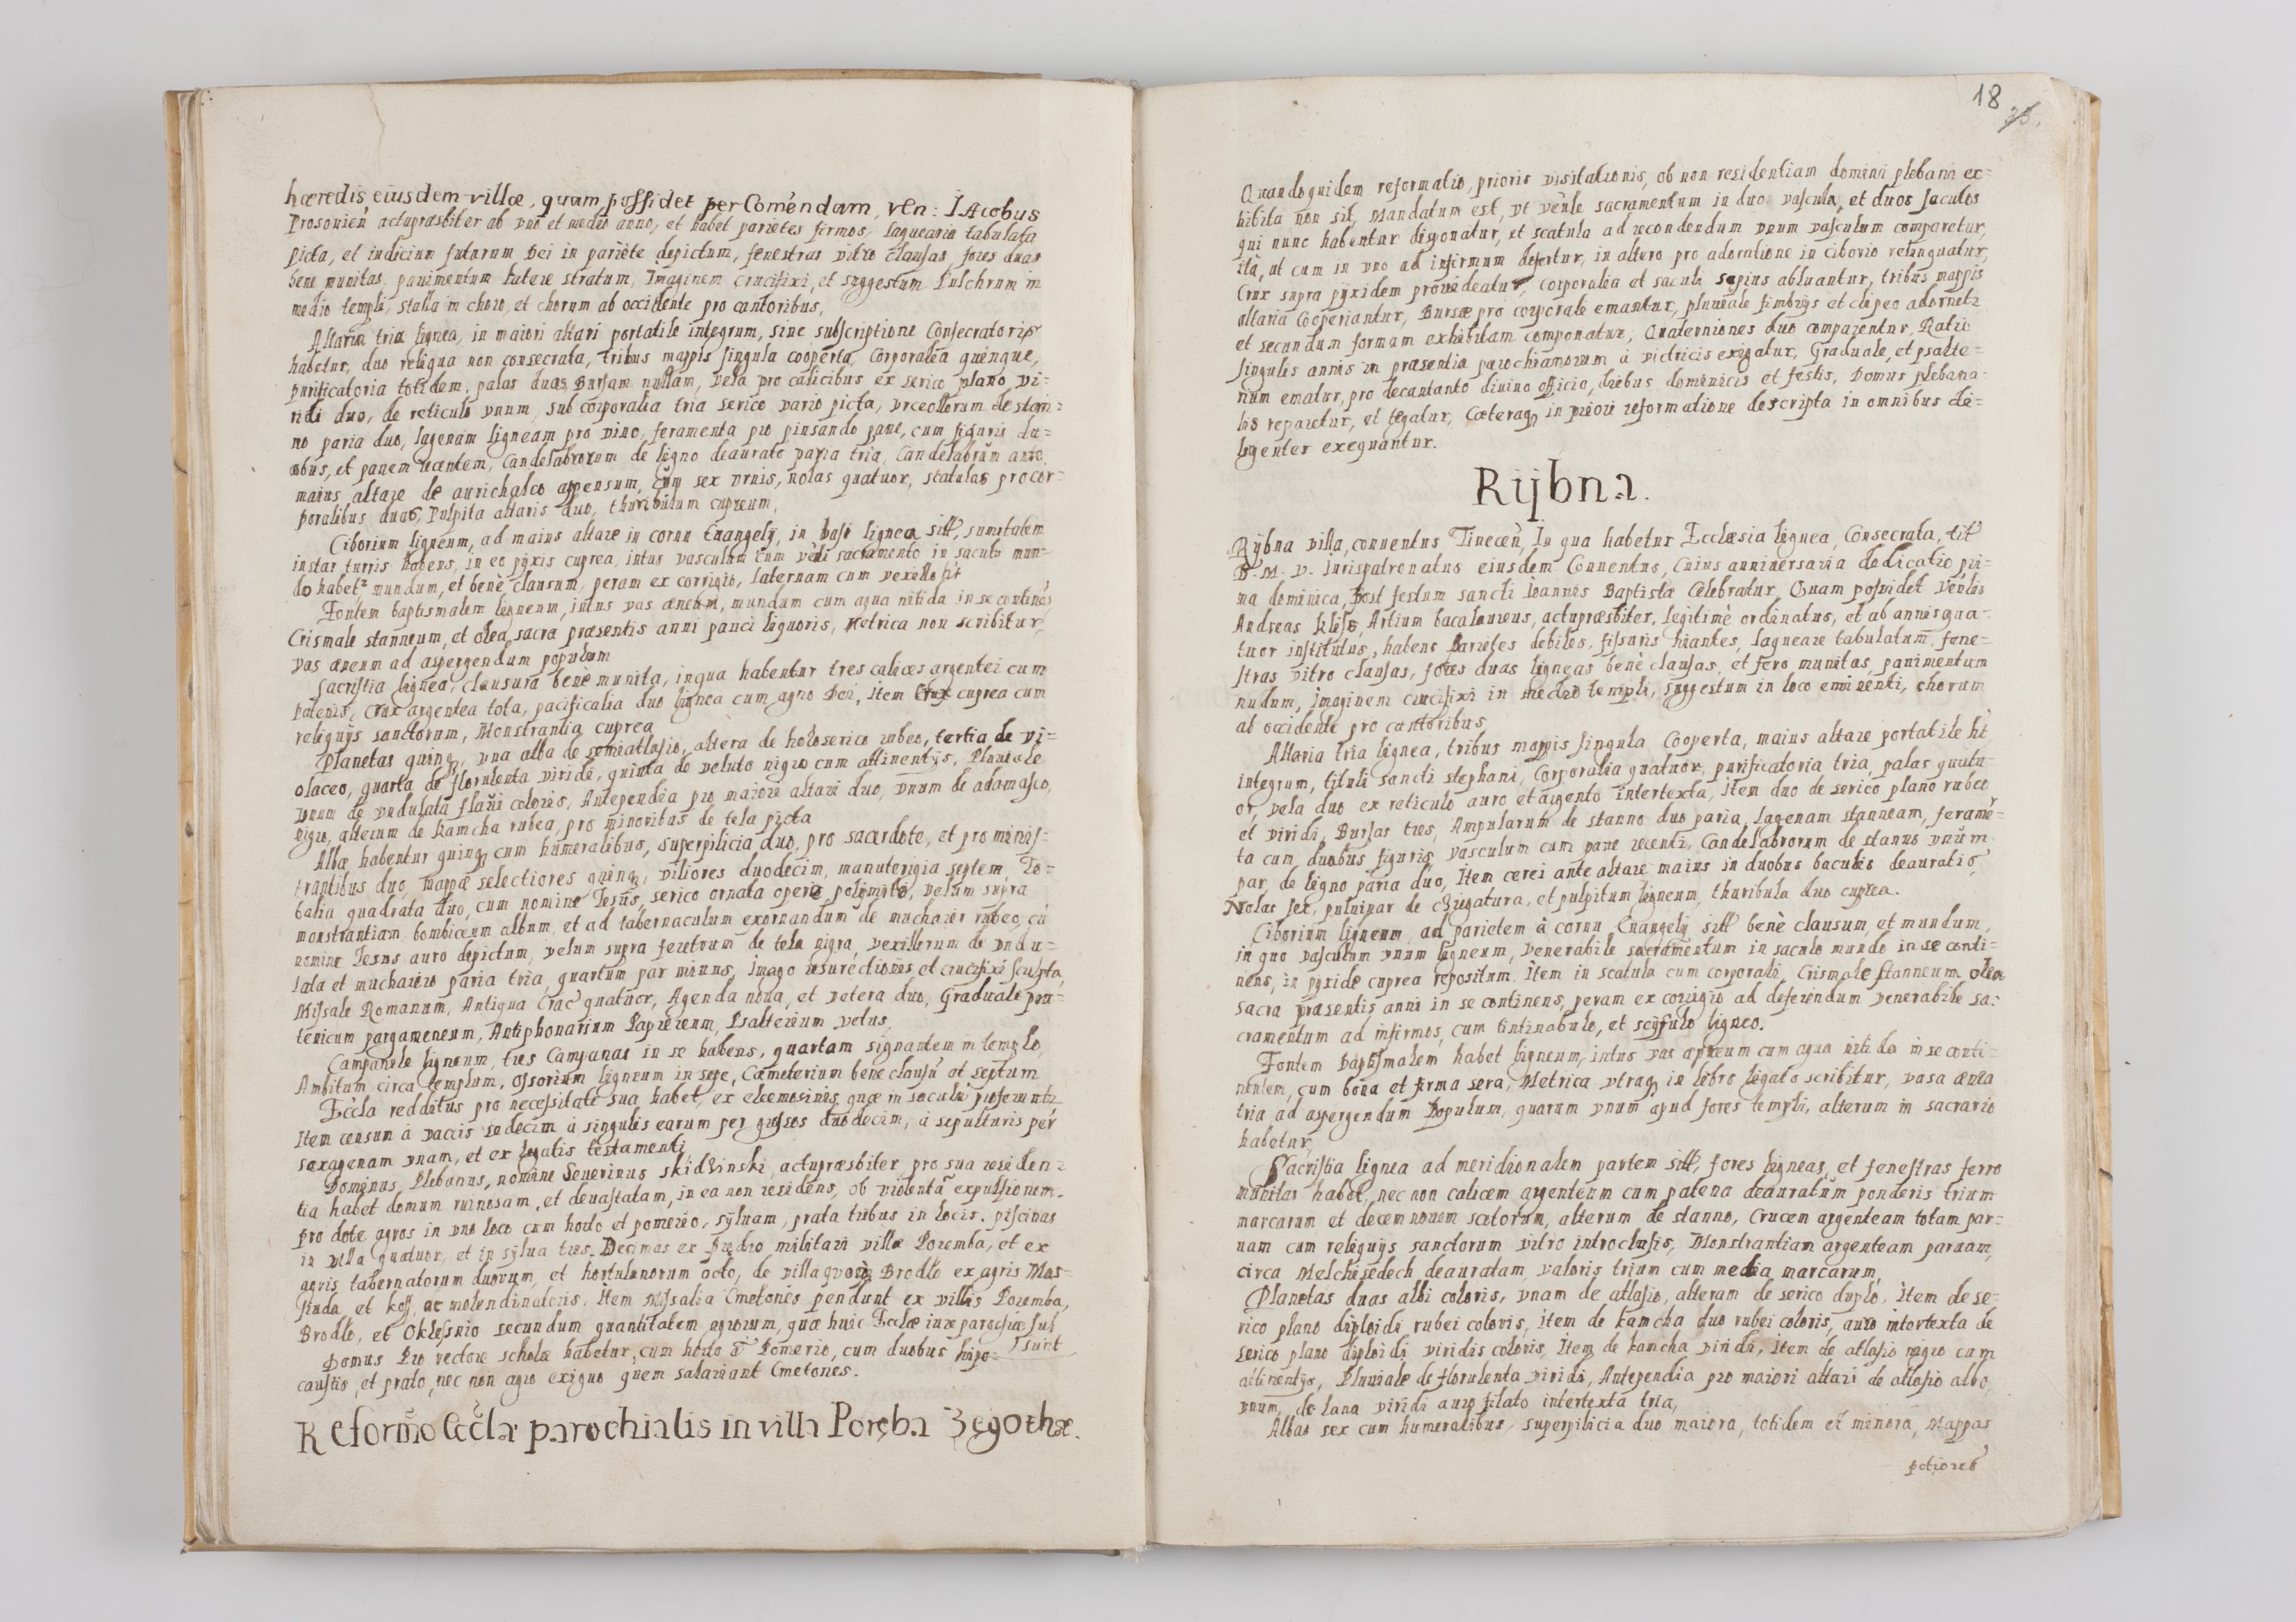 hæredis eiusdem villæ, quam possidet per Comendam, ven: IAcobus
Prosouien̄ actupræsbiter ab uno et medio anno, et habet parietes firmos, laquearia tabulata
picta, et iudicium futurum Dei in pariete depictum, fenestras vitro clausas, fores duas
bene munitas, pauimentum latere stratum, Imaginem crucifixi, et suggestum Pulchrum in
medio templi, stalla in choro, et chorum ab occidente pro cantoribus,
Altaria tria lignea, in maiori altari portatile integrum, sine subscriptione Consecratoris
habetur, duo reliqua non consecrata, tribus mappis singula cooperta, Corporalia quinque,
purificatoria totidem, palas duas, Bursam nullam, vela pro calicibus ex serico plano, vi=
ridi duo, de reticulo vnum, sub corporalia tria serico vario picta, vrceollorum de stan=
no paria duo, lagenam ligneam pro vino, feramenta pro pinsando pane, cum figuris du=
abus, et panem recentem, Candelabrorum de ligno deaurato paria tria, Candelabrum ante
maius altare de aurichalco appensum, cum sex vrnis, nolas quatuor, scatulas pro cor=
poralibus duas, Pulpita altaris duo, thuribulum cupreum,
Ciborium ligneum, ad maius altare in cornu Euangelij, in basi lignea, sitt, sumitatem
instar turris habens, in eo pyxis cuprea, intus vasculum cum veñli sacramento in saculo mun=
do habetz mundum, et bene clausum, peram ex corrigio, laternam cum vexillo sit
Fontem baptismalem ligneum, intus vas æneum, mundum cum aqua nitida in se continēs
Crismale stanneum, et olea sacra præsentis anni pauci liquoris, Metrica non scribitur,
vas æneum ad aspergendum populum
Sacristia lignea, clausura bene munita, in qua habentur tres calices argentei cum
patenis, Crux argentea tota, pacificalia duo lignea cum agno Dei, Item Crux cuprea cum
reliquijs sanctorum, Monstrantia cuprea
Planetas quinq, vna alba de semiatlasio, altera de holoserico rubeo, tertia de vi=
olaceo, quarta de florulenta viridi, quinta de veluto nigro cum attinentijs, Pluuiale
vnum de vndulata flaui coloris, Antependia pro maiori altari duo, vnum de adamasco,
nigro, alterum de kamcha rubea, pro minoribus de tela picta
Albæ habentur quinq cum humeralibus, superpilicia duo, pro sacerdote, et pro minis=
trantibus duo, mappæ selectiores quinq, viliores duodecim, manutergia septem, To=
balia quadrata duo, cum nomine Iesus, serico ornata opere polimito, velum supra
monstrantiam bombiceum album, et ad tabernaculum exornandum de muchaier rubeo, cū
nomine Iesus auro depictum, velum supra feretrum de tela nigra, vexillorum de vndu=
lata et muchaiero paria tria, quartum par minus, Imago resurectionis et crucifixi sculpta,
Missale Romanum, Antiqua Crac̄ quatuor, Agenda noua, et vetera duo, Graduale pru=
tenicum pargameneum, Antiphonarium Papireum, Psalterium vetus,
Campanile ligneum, tres Campanas in se habens, quartam signantem in templo,
Ambitum circa templum, ossorium ligneum in sepe, Cæmeterium bene clausū et septum
Eccla redditus pro necessitate sua habet, ex elemosinis, quæ in saculū proferuntz
Item censum à vaccis sedecim à singulis earum per grossos duodecim, à sepulturis per
sexagenam vnam, et ex legatis testamenti
Dominus Plebanus, nomine Seuerinus skidzinski, actupræsbiter, pro sua residen=
tia habet domum ruinosam, et deuastatam, in ea non residens, ob violentā expulsionem.
pro dote agros in vno loco cum horto et pomerio, syluam, prata tribus in locis. piscinas
in villa quatuor, et in sylua tres. Decimas ex Prædio militari villæ Poremba, et ex
agris tabernatorum duorum, et hortulanorum octo, de villa quoq Brodło ex agris Mas=
siuda et koss, ac molendinatoris. Item Missalia Cmetones pendunt ex villis Poremba,
Brodło, et Oklesnio secundum quantitatem agrorum, quæ huic Ecclæ iure parochiæ sub
sunt
Domus Pro rectore scholæ habetur, cum horto et Pomerio, cum duobus hipo=
caustio, et prato, nec non agro exiguo quem salariant Cmetones.
Reformo Eccle parochialis in villa Poręba Zegothæ.
18
Quandoquidem reformatio, prioris visitationis, ob non residentiam domini plebani ex=
hibita non sit, Mandatum est, vt veñle sacramentum in duo vascula, et duos saculos
qui nunc habentur disponatur, et scatula ad recondendum vnum vasculum comparetur,
ità, ut cum in vno ad infirmum defertur, in altero pro adoratione in ciborio relinquatur,
Crux supra pyxidem prouideatur, corporalia et saculi sæpius abluantur, tribus mappis
altaria Cooperiantur, Bursæ pro corporale emantur, pluuiale fimbrijs et clipeo adornetz
et secundum formam exhibitam componatur, Quaterniones duo comparentur, Ratio
singulis annis in præsentia parochianorum à victricis exigatur, Graduale, et psalte=
rium ematur, pro decantanto diuino officio, diebus dominicis et festis. Domus plebana=
lis reparetur, et tegatur, Cæteraq in priori reformatione descripta in omnibus di=
ligenter exequantur.
Rijbna.
Rijbna villa, conuentus, Tinecen̄, In qua habetur Ecclæsia lignea, Consecrata, titᵗ
B. M. V. Iurispatronatus eiusdem Conuentus, Cuius anniuersaria dedicatio pri=
ma dominica, Post festum sancti Ioannis Baptistæ Celebratur, Quam possidet Veñlis
Andreas kliss, Artium bacalaureus, actupræsbiter, legitimè ordinatus, et ab annis qua=
tuor institutus, habens Parietes debiles, fissuris hiantes, laqueare tabulatum, fene=
stras vitro clausas, fores duas ligneas benè clausas, et fero munitas, pauimentum
nudum, imaginem crucifixi in medio templi, suggestum in loco eminenti, chorum
ab occidente pro cantoribus,
Altaria tria lignea, tribus mappis singula Cooperta, maius altare portatile ht
integrum, tituli sancti stephani, Corporalia quatuor, purificatoria tria, palas quatu=
or, vela duo ex reticulo auro et argento intertexta, item duo de serico plano rubeo
et viridi, Bursas tres, Ampularum de stanno duo paria, lagenam stanneam, feramē=
ta cum duobus figuris, vasculum cum pane recenti, Candelabrorum de stanno vnum
par, de ligno paria duo, Item cerei ante altare maius in duobus baculis deauratis,
Nolas sex, puluinar de czugatura, et pulpitum ligneum, thuribula duo cuprea.
Ciborium ligneum, ad parietem à cornu Euangelij sitt benè clausum, et mundum,
in quo vasculum vnum ligneum, venerabile sacramentum in saculo mundo in se conti=
nens, in pyxide cuprea repositum. Item in scatula cum corporali, Crismale stanneum olea
sacra præsentis anni in se continens, peram ex corrigio ad deferendum venerabile sa=
cramentum ad infirmos, cum tintinabulo, et scyfulo ligneo.
Fontem Baptismalem habet ligneum, intus vas cupreum cum aqua nitida in se conti=
nentem, cum bona et firma sera, Metrica vtraq in libro ligato scribitur, vasa ænea
tria ad aspergendum Populum, quarum vnum apud fores templi, alterum in sacrario
habetur,
Sacristia lignea ad meridionalem partem sitt, fores ligneas, et fenestras ferro
munitas habet, nec non calicem argenteum cum patena deauratum ponderis trium
marcarum et decem nouem scotorum, alterum de stanno, Crucem argenteam totam par=
uam cum reliquijs sanctorum vitro introclusis, Monstrantiam argenteam paruam,
circa Melchisedech deauratam, valoris trium cum media marcarum,
Planetas duas albi coloris, vnam de atlasio, alteram de serico duplo. Item de se=
rico plano diploidi rubei coloris, Item de kamcha duo rubei coloris, auro intertexta de
serico plano diploidi viridis coloris, Item de kamcha viridi, Item de atlasio nigro cum
attinentijs, Pluuiale de florulenta viridi, Antependia pro maiori altari de atlasio albo
vnum, de lana viridi auro filato intertexta tria,
Albas sex cum humeralibus, superpilicia duo maiora, totidem et minora, Mappas
potiores